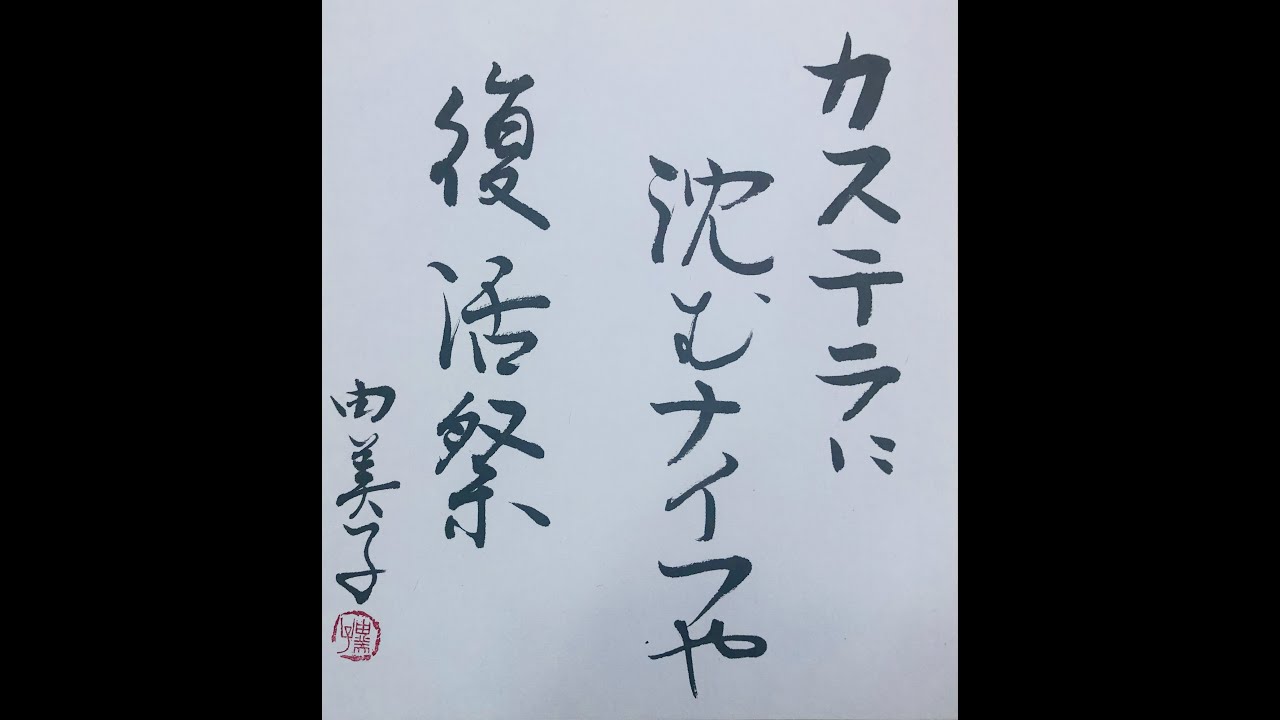 カステラに
沈むナイフや
復活祭
由美子